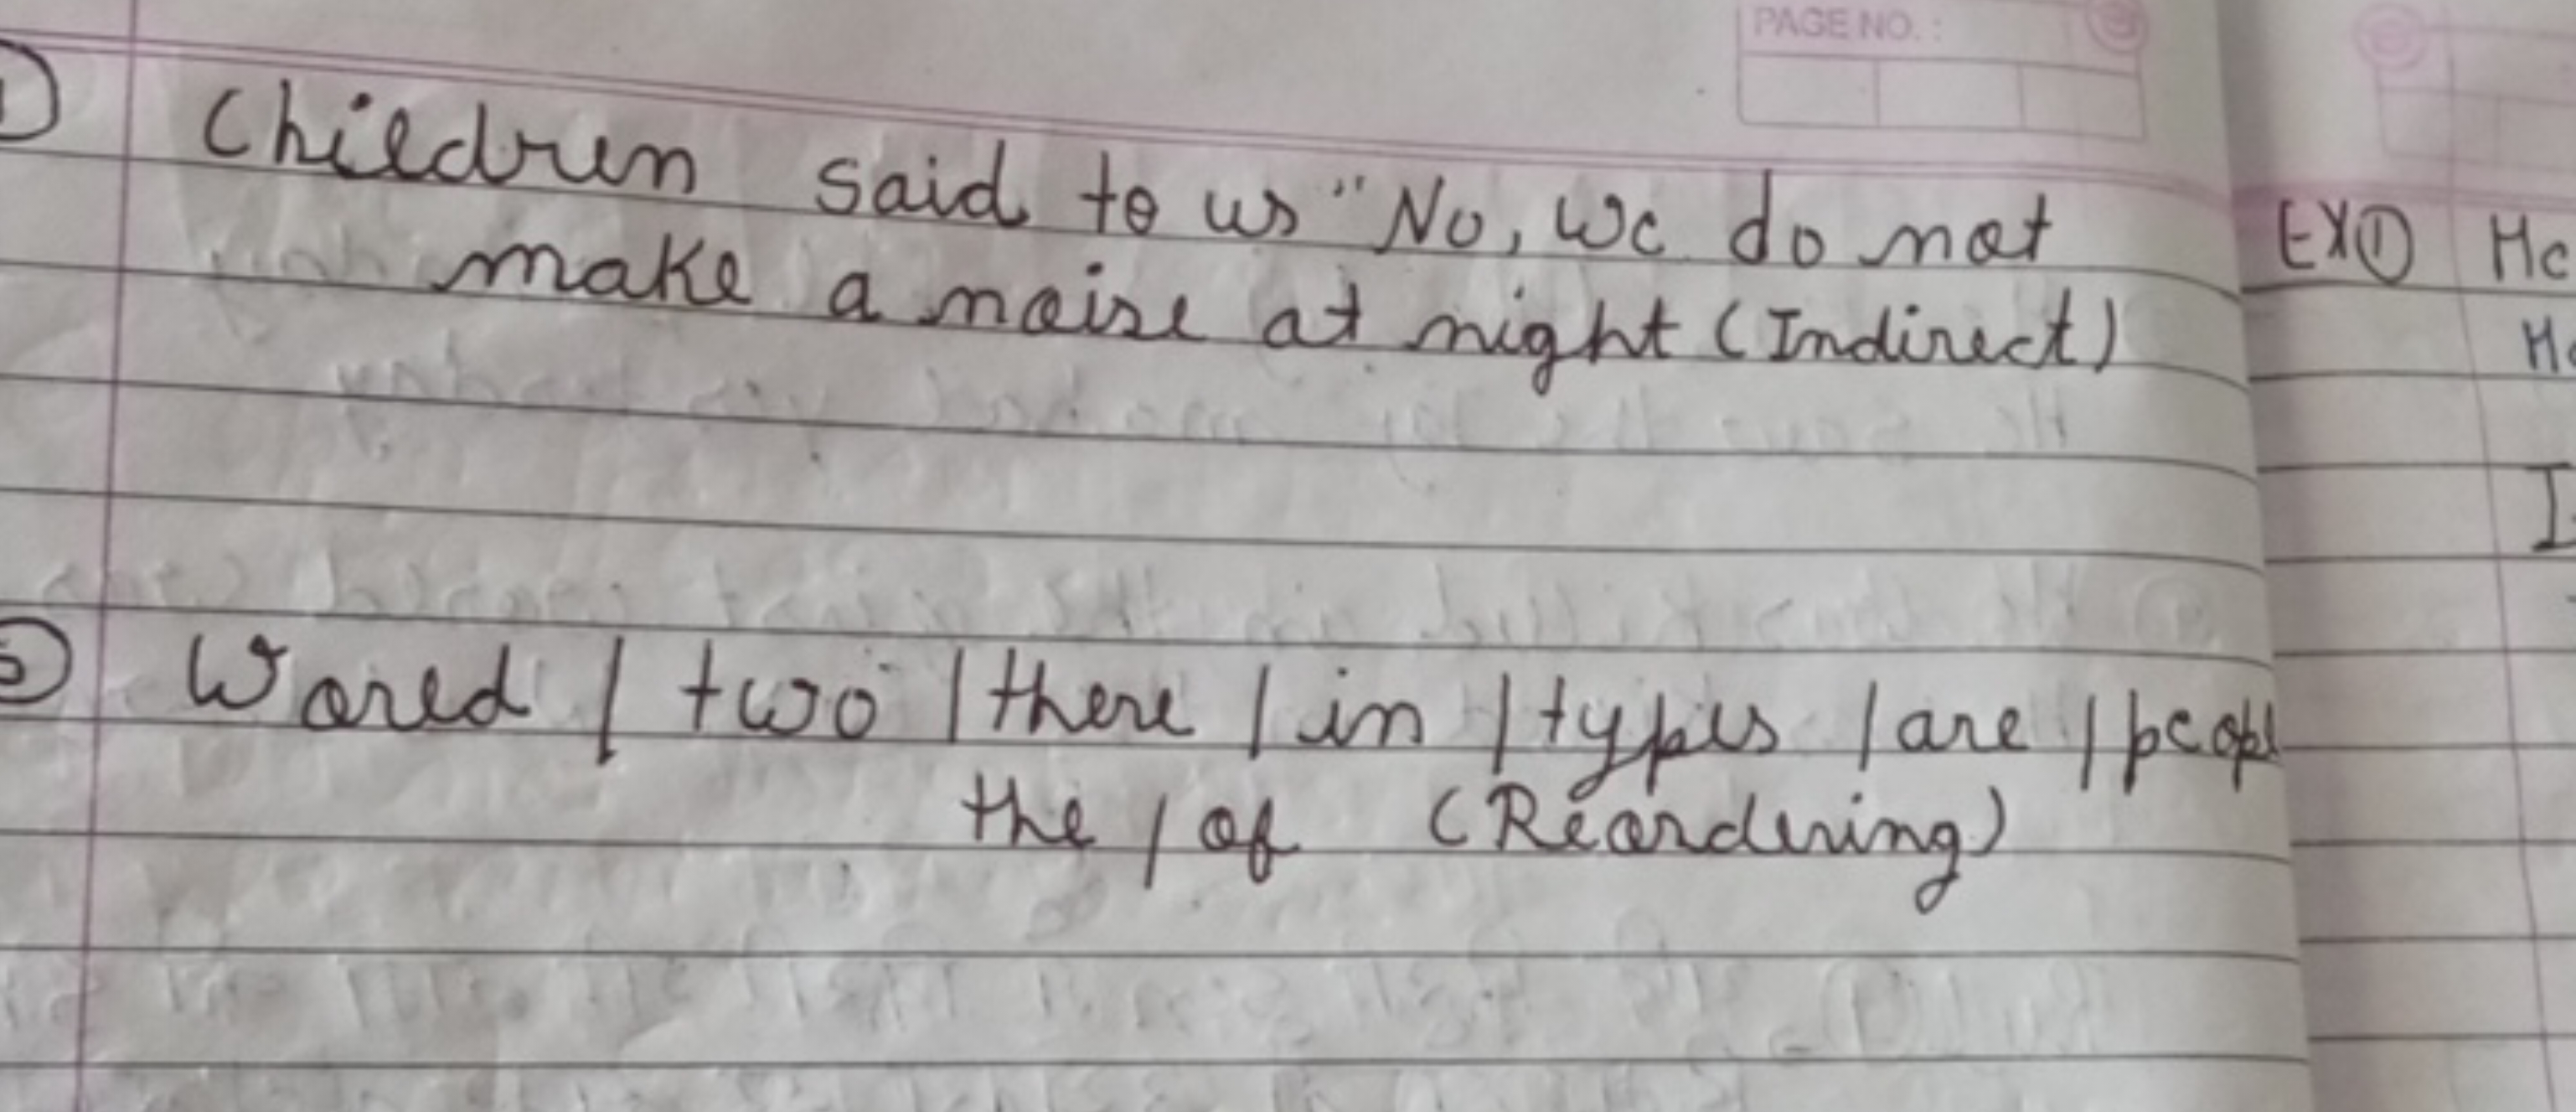 PAGE NO. :
1) Children said to us "No, We do not
make a noise at night (Indirect)
World / two / there / in / types / are / peopl
the / of (Reordering)
EX①